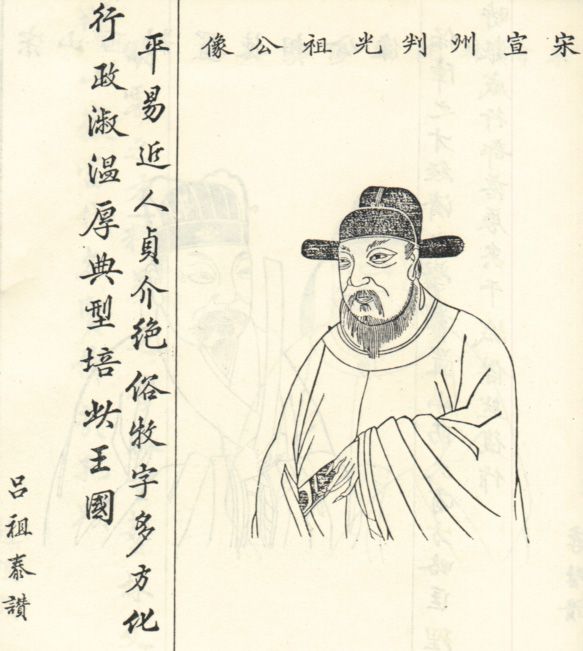 宋宣州判光祖公像
平易近人貞介绝俗牧字多方化
行政淑温厚典型培此王國
吕祖泰讃